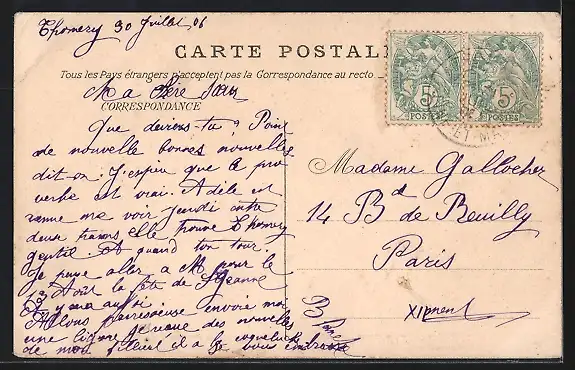 Thomery 30 Juillet 06
CARTE POSTALE
Tous les Pays étrangers n'acceptent pas la Correspondance au recto
Ma Chère Sœur
CORRESPONDANCE
Que deviens-tu? Point
de nouvelle bonnes nouvelles
dit on. J'espère que le pro
verbe est vrai. Adèle est
venue me voir jeudi entre
deux trains elle trouve Thomery
gentil. Et quand ton tour.
Je pense aller à M pour le
Août la fête de Jeanne
y sera aussi
Allons paresseuse envoie moi
une ligne des nouvelles
de mon filleul il a la coqueluche
Je vous embrasse
5c
POSTES
5c
POSTES
Madame Gallocher
14 Bd de Reuilly
Paris